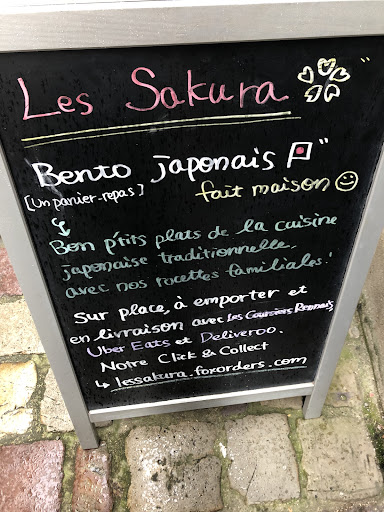 Les Sakura
"Bento japonais"
[Un panier-repas]
fait maison
Bon p'tits plats de la cuisine
japonaise traditionnelle,
avec nos recettes familiales!
Sur place, à emporter et
en livraison avec Les Coursiers Rennais,
Uber Eats et Deliveroo.
Notre Click & Collect
↳ lessakura.foxorders.com